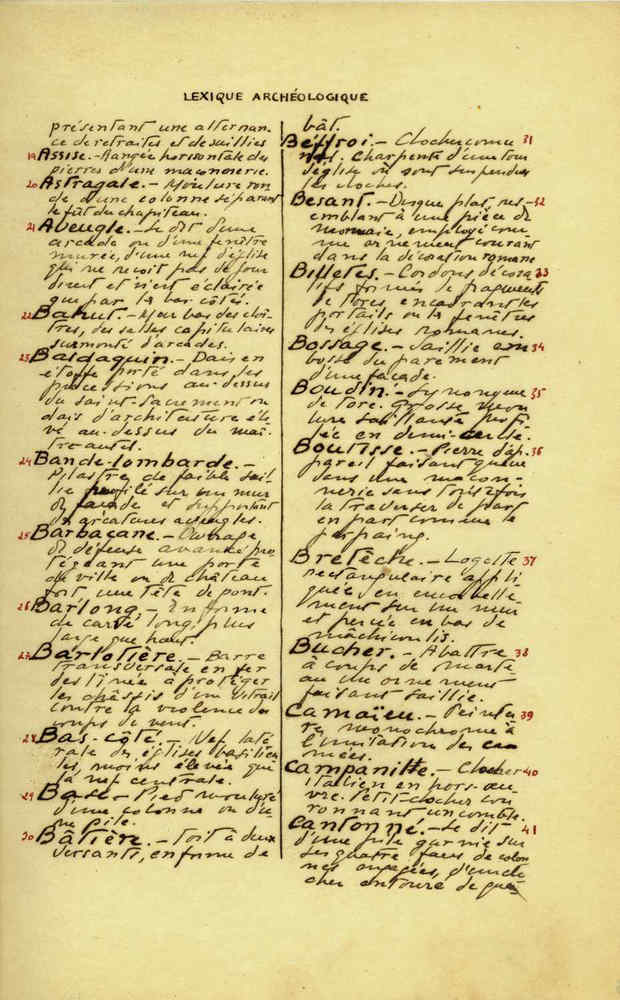 LEXIQUE ARCHÉOLOGIQUE
présentant une alternan-
ce de retraits et de saillies
19 Assise. - Rangée horizontale des
pierres d'une maçonnerie.
20 Astragale. - Moulure ron
de d'une colonne séparant
le fût du chapiteau.
21 Aveugle. - Se dit d'une
arcade ou d'une fenêtre
murée, d'une nef d'église
qui ne reçoit pas de jour
direct et n'est éclairée
que par les bas côtés.
22 Bahut. - Mur bas des cloî-
tres, des salles capitulaires
surmonté d'arcades.
23 Baldaquin. - Dais en
étoffe porté dans les
processions au-dessus
du Saint-Sacrement ou
dais d'architecture éle-
vé au-dessus du maî-
tre-autel.
24 Bande-lombarde. -
Pilastre de faible sail-
lie profilé sur un mur
de façade et supportant
des arcatures aveugles.
25 Barbacane. - Ouvrage
de défense avancé pro
tégeant une porte
de ville ou de château
fort, une tête de pont.
26 Barlong. - En forme
de carré long, plus
large que haut.
27 Barlotière. - Barre
transversale en fer
destinée à protéger
les châssis d'un vitrail
contre la violence des
coups de vent.
28 Bas-côté. - Nef laté
rale des églises basilica
les, moins élevée que
la nef centrale.
29 Base - Pied mouluré
d'une colonne ou d'u
ne pile.
30 Bâtière. - Toit à deux
versants, en forme de
bât.
Béffroi. - Clocher comu 31
nal. Charpente d'une tour
d'église où sont suspendues
les cloches.
Besant. - Disque plat, res- 32
emblant à une pièce de
monnaie, employé com-
me ornement courant
dans la décoration romane
Billetes. - Cordons décora 33
tifs formés de fragments
de tores, encadrant les
portails ou les fenêtres
des églises romanes.
Bossage. - Saillie en 34
bosse du parement
d'une façade.
Boudin. - Synonyme 35
de tore. Grosse mou
lure saillante profi-
lée en demi-cercle.
Boutisse. - Pierre d'ap- 36
pareil faisant queue
dans une maçon-
nerie sans toutefois
la traverser de part
en part comme le
parpaing.
Bretêche. - Logette 37
rectangulaire appli
quée en encorbelle
ment sur un mur
et percée en bas de
machicoulis.
Bucher. - Abattre 38
à coups de marte
au un ornement
faisant saillie.
Camaïeu. - Peintu 39
re monochrome à
l'imitation des ca
mées.
Campanille. - Clocher 40
italien en hors-œu
vre. Petit-clocher cou
ronnant un comble.
Cantonné. - Se dit 41
d'une pile garnie sur
ses quatre faces de colon
nes engagées, d'un clo
cher entouré de qua